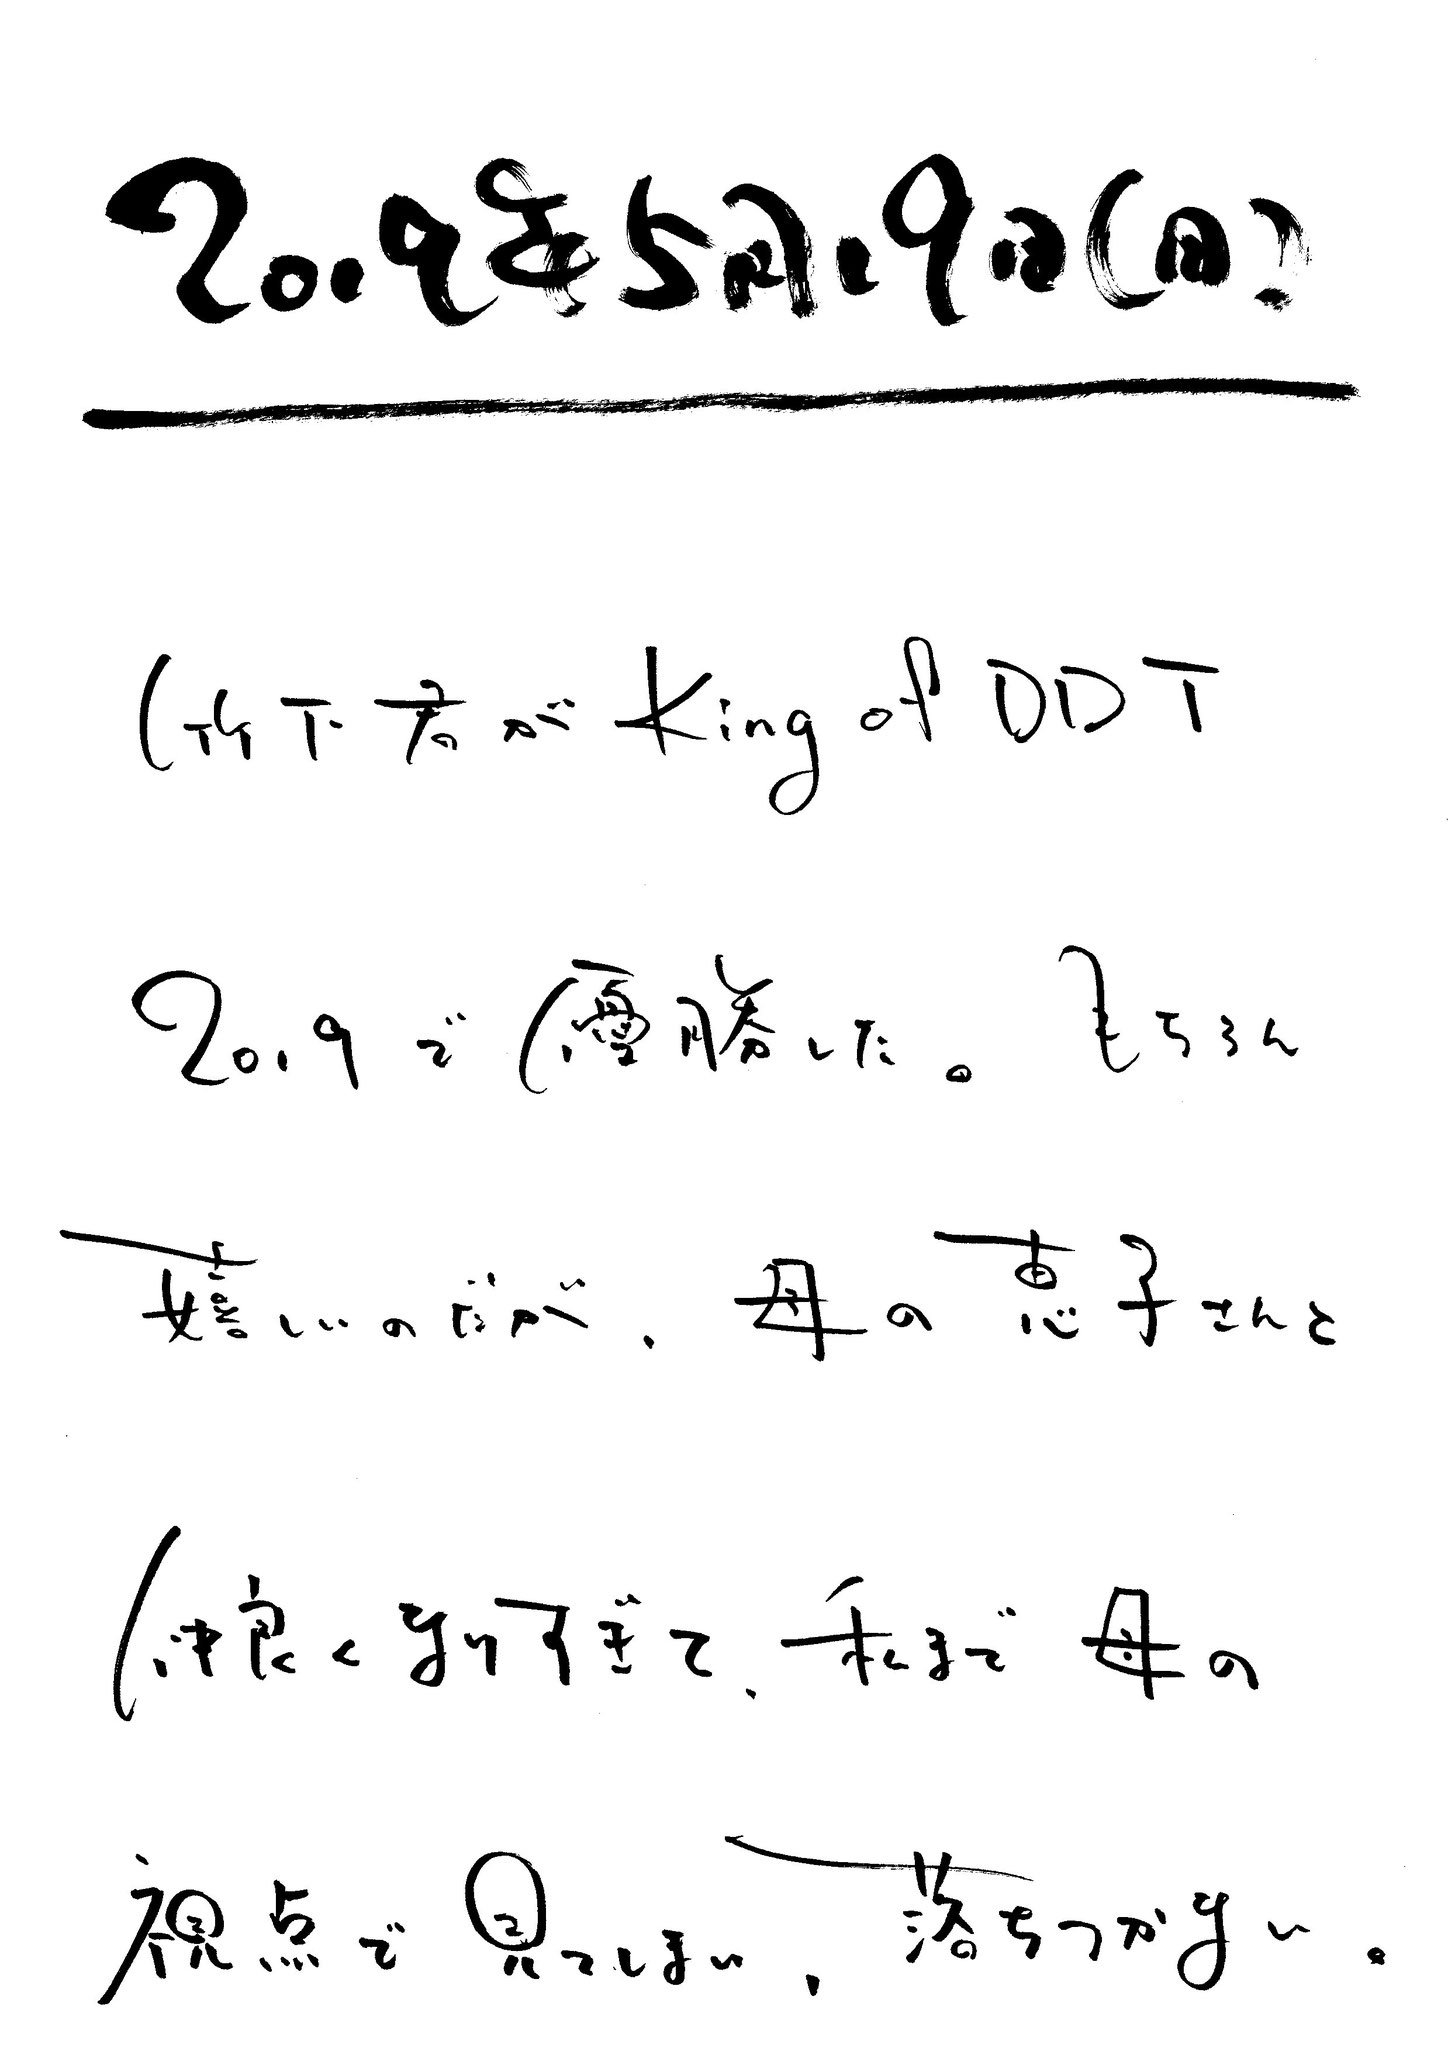 2019年5月19日(日)
竹下君がKing of DDT
2019で優勝した。もちろん
嬉しいのだが、母の恵子さんと
仲良くなりすぎて、私まで母の
視点で見てしまい、落ちつかない。